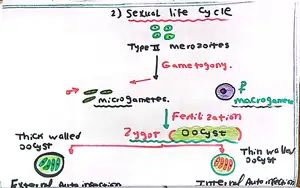 2) Sexual life cycle
Type II merozoites
Gametogony.
microgametes.
macrogamete
Fertilization
Zygot Oocyst
Thick walled
Oocyst
Thin walled
Oocyst
External Autoinfection
Internal Autoinfection